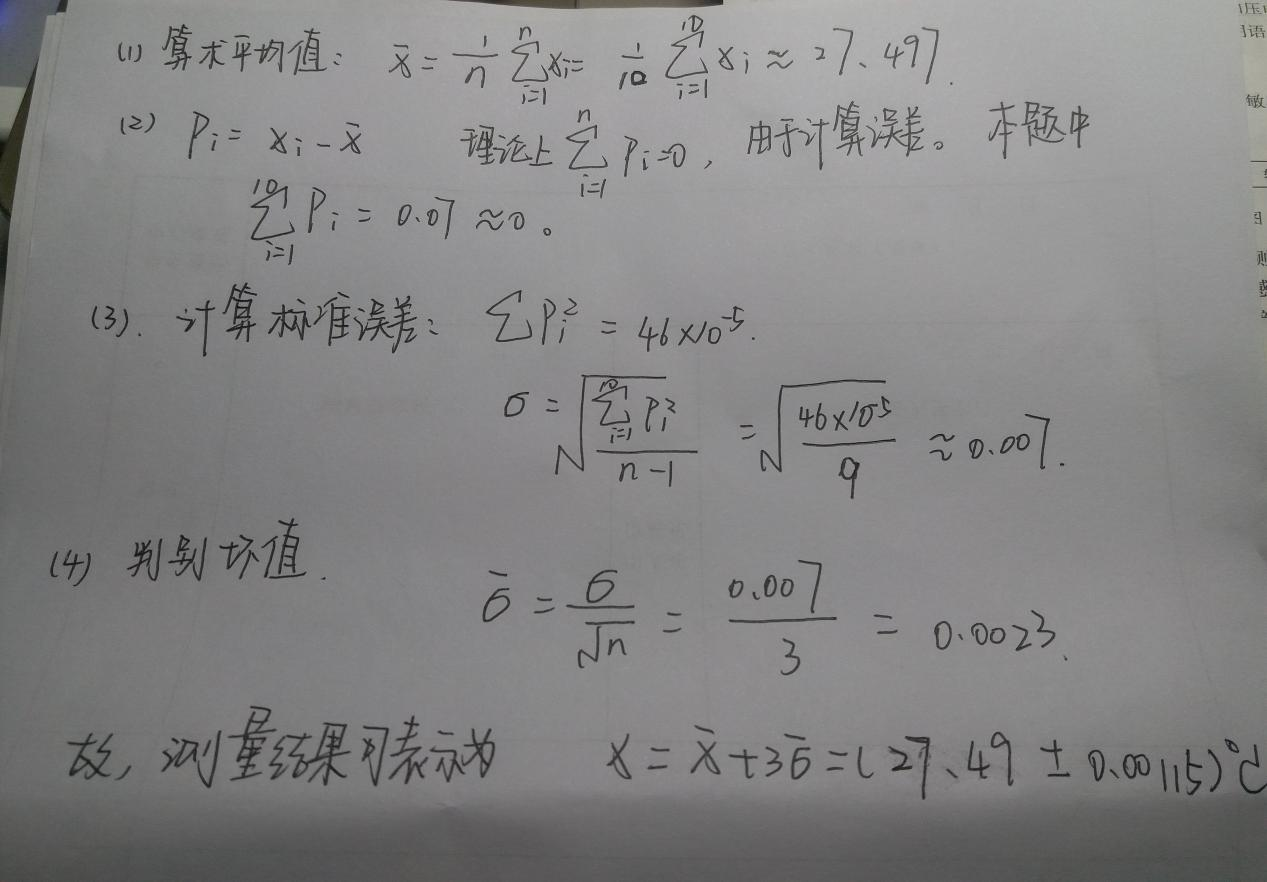 (1) 算术平均值: x̄ = 1/n ∑_{i=1}^{n} xi = 1/10 ∑_{i=1}^{10} xi ≈ 27.497.
(2) Pi = xi - x̄ 理论上 ∑_{i=1}^{n} Pi=0, 由于计算误差。本题中
∑_{i=1}^{10} Pi = 0.07 ≈0。
(3). 计算标准误差: ∑Pi² = 46×10⁻⁵.
σ = √(∑_{i=1}^{10} Pi² / n-1) = √(46×10⁻⁵ / 9) ≈ 0.007.
(4) 判别坏值.
σ̄ = σ/√n = 0.007/3 = 0.0023.
故, 测量结果可表示为 x = x̄+3σ̄ = (27.49 ± 0.00115)℃